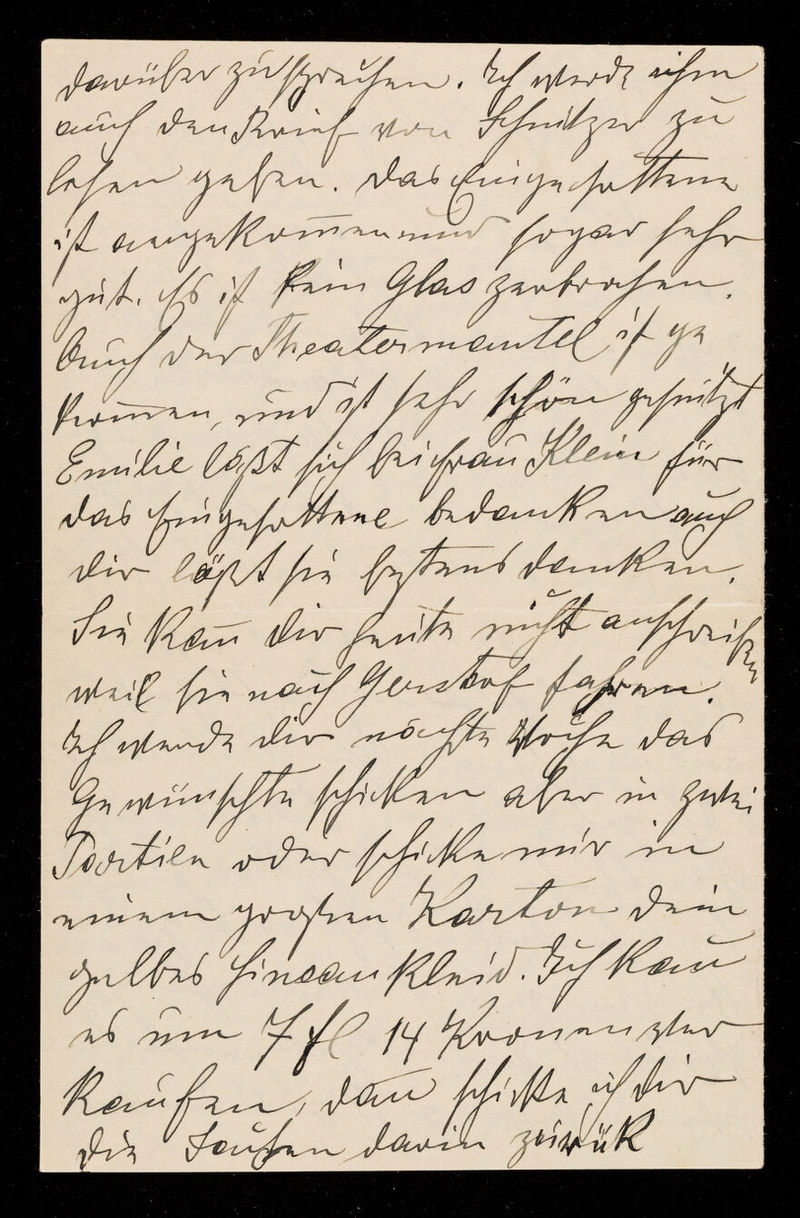 darüber zu sprechen. Ich werde ihm
auch den Brief von Schnitzer zu
lesen geben. Das Eingesottene
ist angekom̅en und sogar sehr
gut. Es ist kein Glas zerbrochen.
Auch der Theatermantel ist ge
kom̅en, und ist sehr schön geputzt
Emilie läßt sich bei Frau Klein für
das Eingesottene bedanken auch
dir läßt sie bestens danken.
Sie kan̅ dir heute nicht anschreiben
weil sie nach fahren.
Ich werde dir nächste Woche das
Gewünschte schicken aber in zwei
Partien oder schicke mir in
einem großen Karton dein
gelbes Kleid. Ich kan̅
es um 7 fl 14 Kronen ver
kaufen, dan̅ schicke ich dir
die Sachen darin zurük